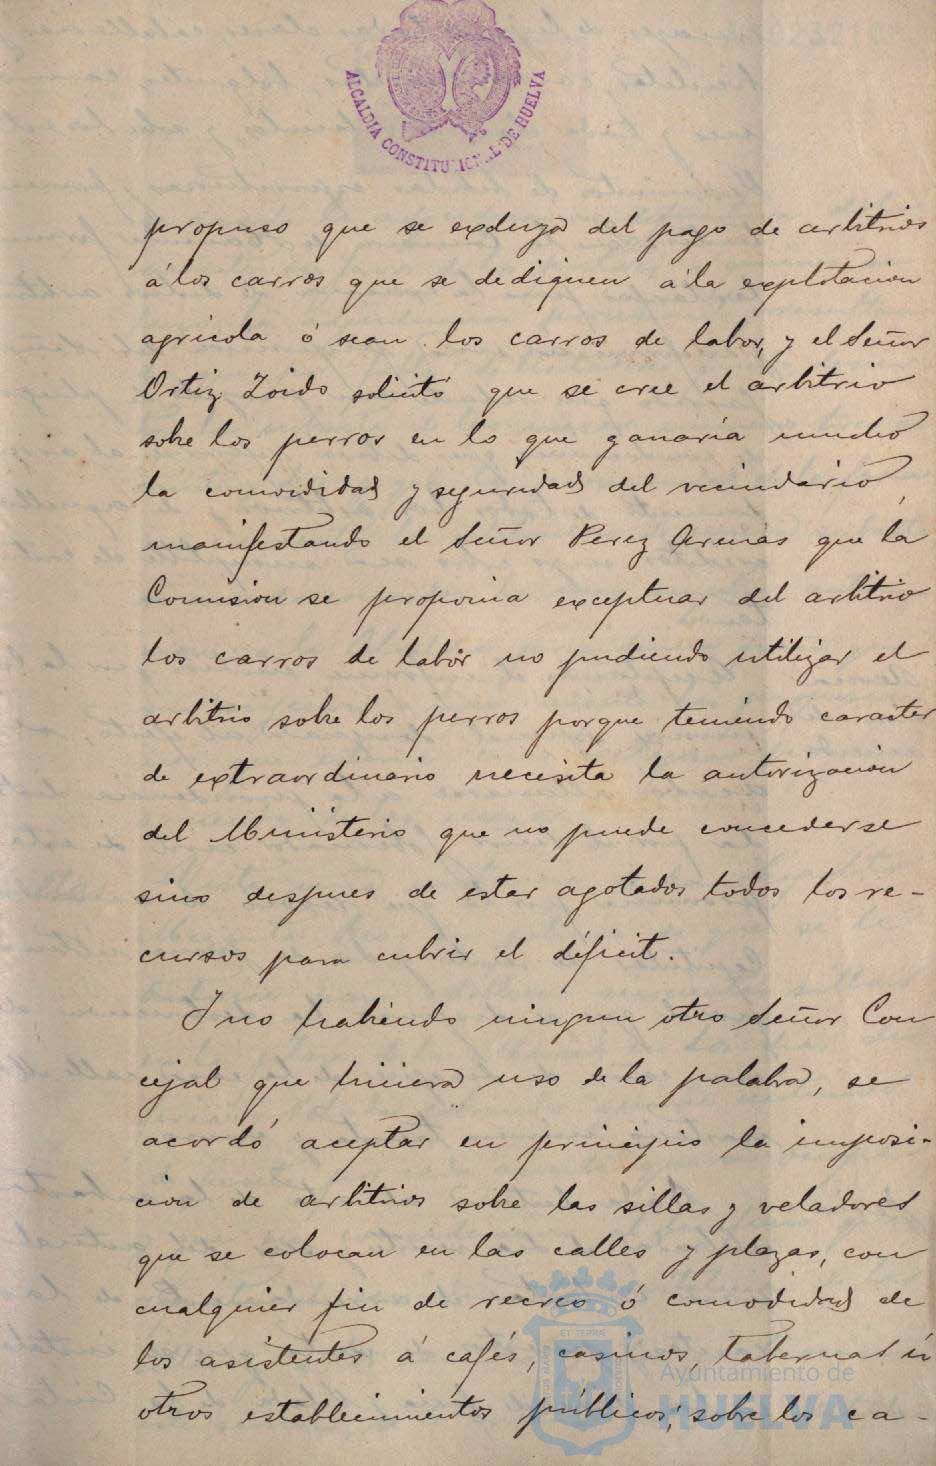 ALCALDIA CONSTITUCIONAL DE HUELVA
propuso que se excluya del pago de arbitrios
á los carros que se dediquen á la explotacion
agricola ó sean los carros de labor, y el Señor
Ortiz Zoido solicitó que se cree el arbitrio
sobre los perros en lo que ganaria mucho
la comodidad y seguridad del vecindario,
manifestando el Señor Perez Arenas que la
Comision se proponia exceptuar del arbitrio
los carros de labor no pudiendo utilizar el
arbitrio sobre los perros porque teniendo caracter
de extraordinario necesita la autorizacion
del Ministerio que no puede concederse
sino despues de estar agotados todos los re-
cursos para cubrir el déficit.
Y no habiendo ningun otro Señor Con
cejal que hiciera uso de la palabra, se
acordó aceptar en principio la imposi-
cion de arbitrios sobre las sillas y veladores
que se colocan en las calles y plazas, con
cualquier fin de recreo ó comodidad de
los asistentes á cafés, casinos, tabernas ú
otros establecimientos públicos; sobre los ca-
Ayuntamiento de
HUELVA